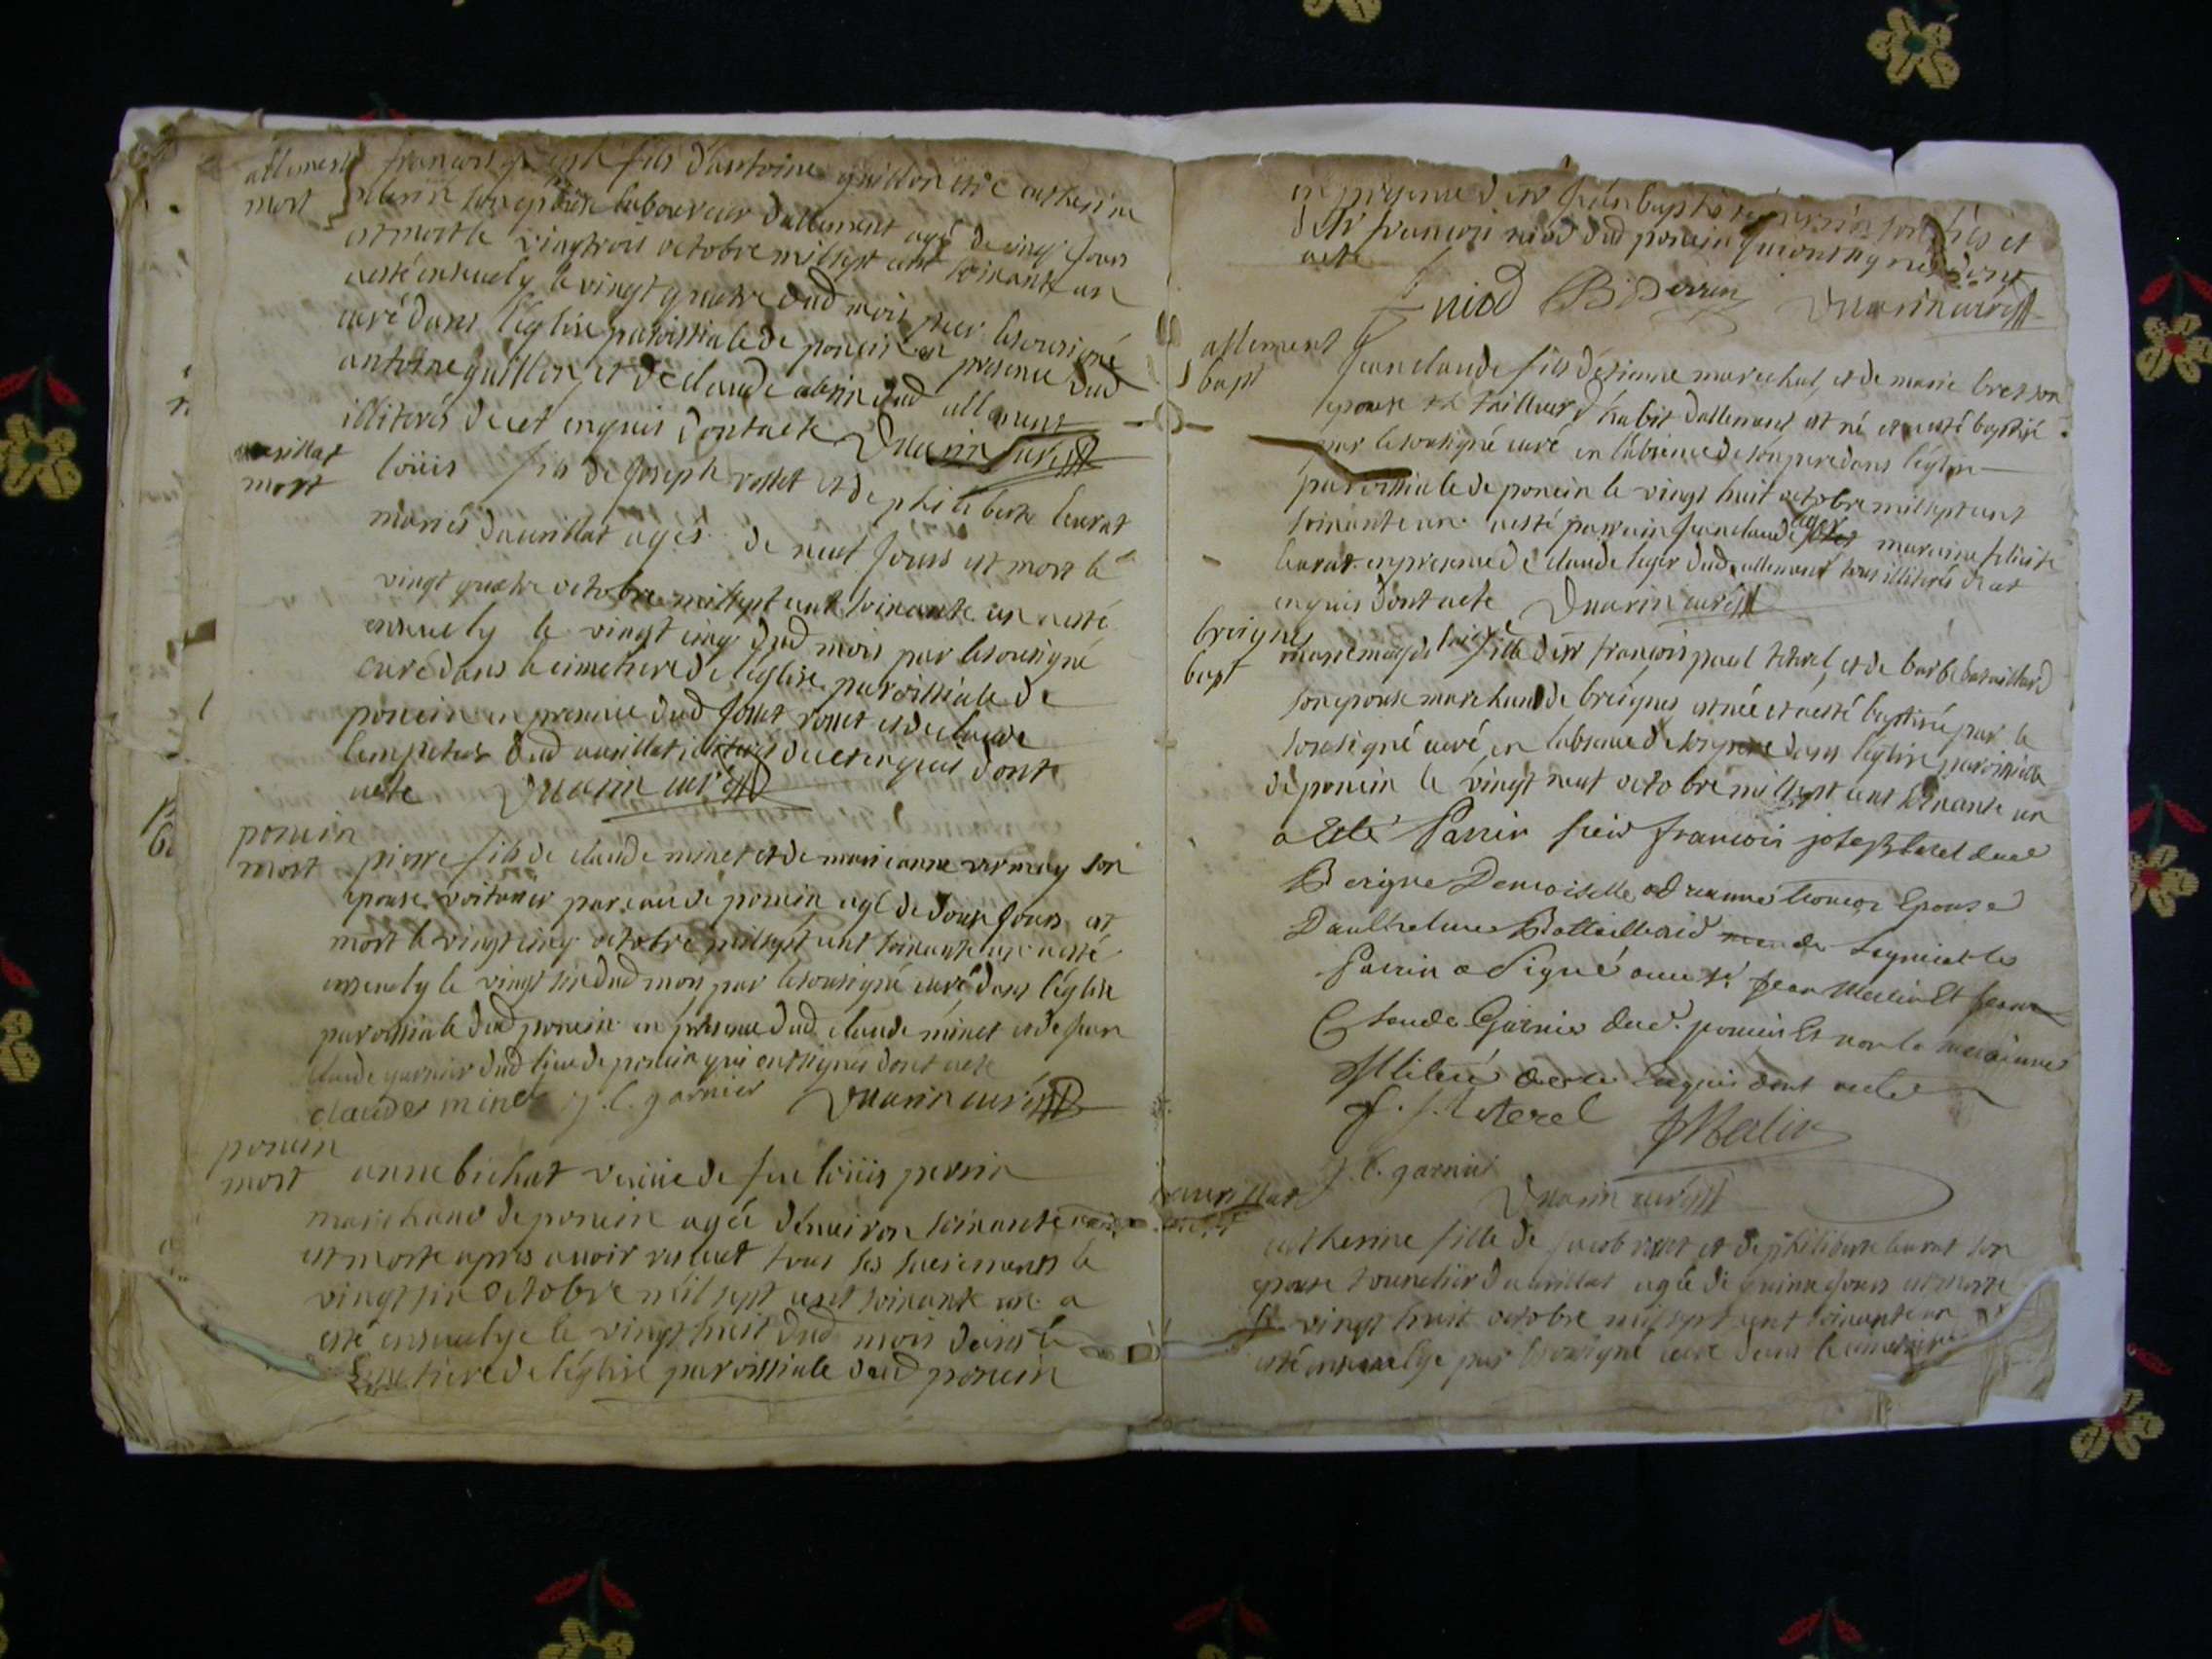 allement
mort
françois joseph fils d'antoine guillon et de catherine
alerin son epouse laboureur d'allement agé de cinq jours
est mort le vingtrois octobre mil sept cent soixante un
a esté ensevely le vingt quatre dud mois par le sousigné
curé dans l'église paroissiale de poncin en presence dud
antoine guillon et de claude alerin dud allement
illiterés de ce enquis dont acte Duarin curé
avrillat
mort
loüis fils de joseph rosset et de philiberte levrat
mariés d'avrillat agés de neuf jours est mort le
vingt quatre octobre mil sept cent soixante un a esté
ensevely le vingt cinq dud mois par le sousigné
curé dans le cimetiere de l'église paroissiale de
poncin en presence dud rosset et de claude
dud avrillat illiterés de ce enquis dont
acte Duarin curé
poncin
mort
pierre fils de claude minet et de marie anne vermay son
epouse voiturier par eau de poncin agé de douze jours est
mort le vingt cinq octobre mil sept cent soixante un a esté
ensevely le vingt six dud mois par le sousigné curé dans l'église
paroissiale dud poncin en presence dud claude minet et de jean
claude garnier dud lieu de poncin qui ont signés dont acte
claude minet j. C. garnier Duarin curé
poncin
mort
anne bichat veüve de feu loüis perrin
marchand de poncin agée d'environ soixante
est morte apres avoir receut tous ses sacrements le
vingt six octobre mil sept cent soixante un a
esté ensevelye le vingt huit dud mois dans le
cimetiere de l'église paroissiale dud poncin
en presence de sr jean baptiste perrin son fils et
de sr françois niod dud poncin qui ont signés dont
acte
niod B. Perrin Duarin curé
allement
bapt
jean claude fils d'étienne marechal, et de marie bret son
epouse tailleur d'habit d'allement est né et a esté baptisé
par le sousigné curé en l'absence de son pere dans l'église
paroissiale de poncin le vingt huit octobre mil sept cent
soixante un a esté parrain jean claude leger maraine felicité
levrat en presence de claude leger dud allement tous illiterés de ce
enquis dont acte Duarin curé
breignes
bapt
marie magde fille de sr françois paul teterel, et de barbe bataillard
son epouse marchand de breignes est née et a esté baptisée par le
sousigné curé en l'absence de son pere dans l'église paroissiale
de poncin le vingt neuf octobre mil sept cent soixante un
a Eté Parrin sieur françois joseph teterel dud
Breigne Demoiselle adrianne Epouse
D'anthelme Battaillard de
Parrin a Signé avec sr jean Merlin Et jean
Claude Garnier dud. poncin Et non la maraine
Illiteré de ce Enquis dont acte
f. j. teterel JMerlin
j. C. garnier
Duarin curé
avrillat
mort
catherine fille de jacob rosset et de philiberte levrat son
epouse tounelier d'avrillat agée de quinze jours est morte
le vingt huit octobre mil sept cent soixante un a
esté ensevelye par le sousigné curé dans le cimetiere